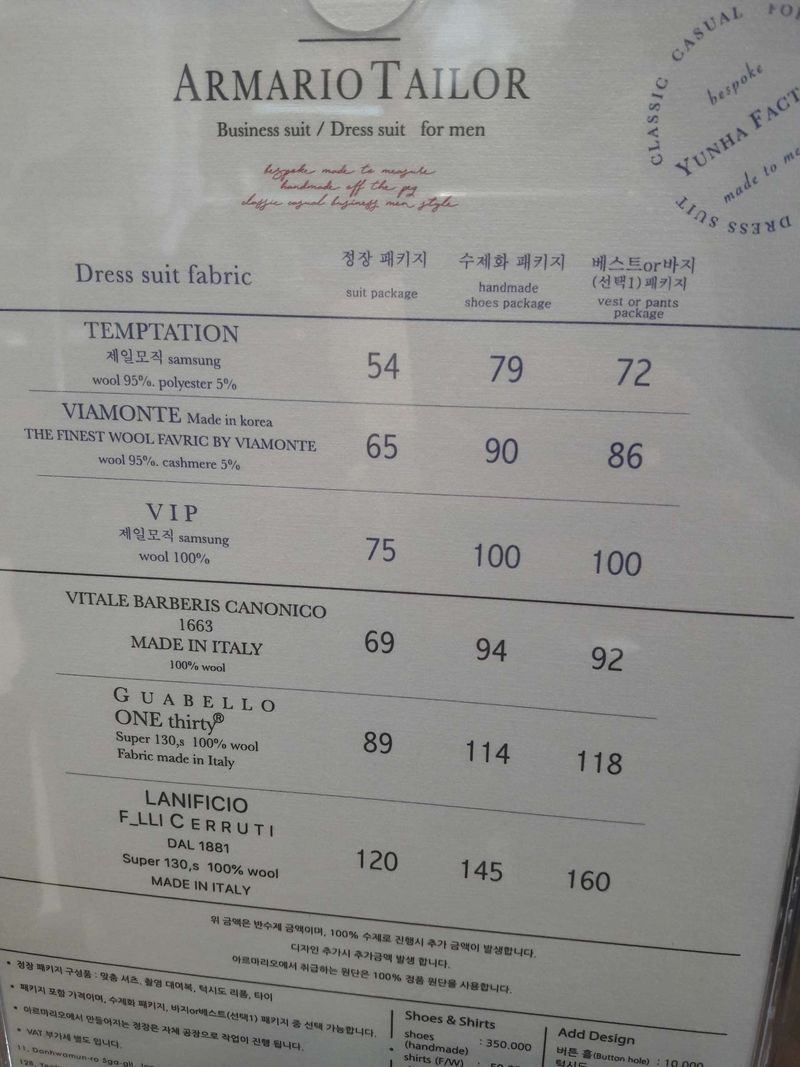 ARMARIO TAILOR
Business suit / Dress suit for men
bespoke made to measure
handmade off the peg
classic casual business men style
CLASSIC CASUAL
bespoke
YUNHA FACT
made to me
DRESS SUIT
Dress suit fabric
정장 패키지
suit package
수제화 패키지
handmade
shoes package
베스트or바지
(선택1)패키지
vest or pants
package
TEMPTATION
제일모직 samsung
wool 95%. polyester 5%
54 79 72
VIAMONTE Made in korea
THE FINEST WOOL FAVRIC BY VIAMONTE
wool 95%. cashmere 5%
65 90 86
VIP
제일모직 samsung
wool 100%
75 100 100
VITALE BARBERIS CANONICO
1663
MADE IN ITALY
100% wool
69 94 92
GUABELLO
ONE thirty®
Super 130,s 100% wool
Fabric made in Italy
89 114 118
LANIFICIO
F_LLI CERRUTI
DAL 1881
Super 130,s 100% wool
MADE IN ITALY
120 145 160
위 금액은 반수제 금액이며, 100% 수제로 진행시 추가 금액이 발생합니다.
디자인 추가시 추가금액 발생 합니다.
아르마리오에서 취급하는 원단은 100% 정품 원단을 사용합니다.
• 정장 패키지 구성품 : 맞춤 셔츠, 촬영 대여복, 턱시도 리폼, 타이
• 패키지 포함 가격이며, 수제화 패키지, 바지or베스트(선택1) 패키지 중 선택 가능합니다.
• 아르마리오에서 만들어지는 정장은 자체 공장으로 작업이 진행 됩니다.
• VAT 부가세 별도 입니다.
11, Donhwamun-ro 5ga-gil,
128,
Shoes & Shirts
shoes
(handmade) : 350.000
shirts (F/W) :
Add Design
버튼 홀(Button hole) : 10.000
턱시도